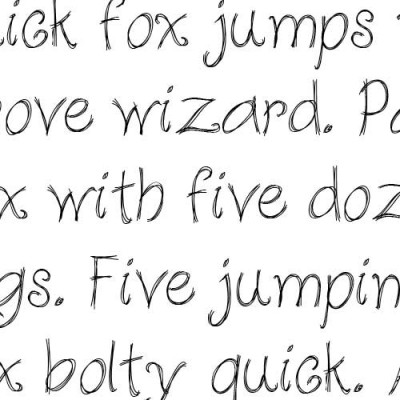 ick fox jumps
ove wizard. Pa
x with five doz
gs. Five jumpin
x bolty quick.